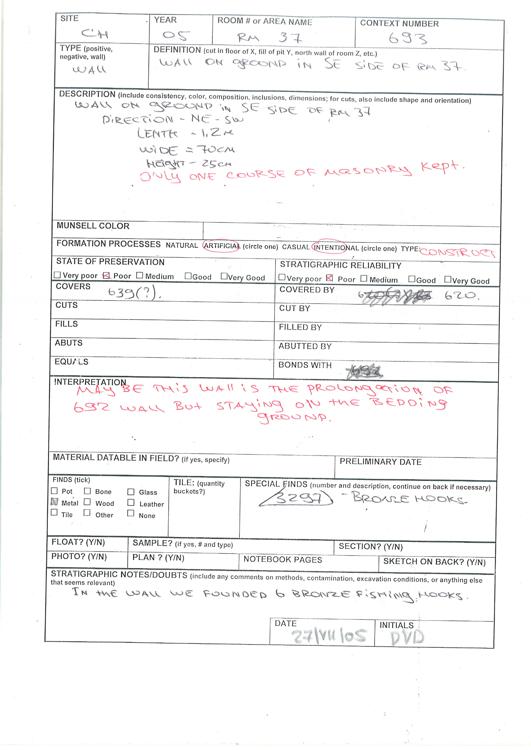 SITE YEAR ROOM # or AREA NAME CONTEXT NUMBER
CH 05 RM 37 693
TYPE (positive, negative, wall) DEFINITION (cut in floor of X, fill of pit Y, north wall of room Z, etc.)
WALL WALL ON GROUND IN SE SIDE OF RM 37.
DESCRIPTION (include consistency, color, composition, inclusions, dimensions; for cuts, also include shape and orientation)
WALL ON GROUND IN SE SIDE OF RM 37
DIRECTION - NE - SW
LENTH - 1,2M
WIDE = 70CM
HEIGHT - 25CM
ONLY ONE COURSE OF MASONRY KEPT.
MUNSELL COLOR
FORMATION PROCESSES NATURAL ARTIFICIAL (circle one) CASUAL INTENTIONAL (circle one) TYPE: CONSTRUCT
STATE OF PRESERVATION STRATIGRAPHIC RELIABILITY
Very poor Poor Medium Good Very Good Very poor Poor Medium Good Very Good
COVERS 639(?). COVERED BY 620.
CUTS CUT BY
FILLS FILLED BY
ABUTS ABUTTED BY
EQUALS BONDS WITH
INTERPRETATION
MAY BE THIS WALL IS THE PROLONGATION OF
692 WALL BUT STAYING ON THE BEDDING
GROUND.
MATERIAL DATABLE IN FIELD? (if yes, specify) PRELIMINARY DATE
FINDS (tick) TILE: (quantity buckets?) SPECIAL FINDS (number and description, continue on back if necessary)
Pot Bone Glass 3297 - BRONZE HOOKS.
Metal Wood Leather
Tile Other None
FLOAT? (Y/N) SAMPLE? (if yes, # and type) SECTION? (Y/N)
PHOTO? (Y/N) PLAN ? (Y/N) NOTEBOOK PAGES SKETCH ON BACK? (Y/N)
STRATIGRAPHIC NOTES/DOUBTS (include any comments on methods, contamination, excavation conditions, or anything else
that seems relevant)
IN THE WALL WE FOUNDED 6 BRONZE FISHING HOOKS.
DATE INITIALS
27/VII/05 DVD